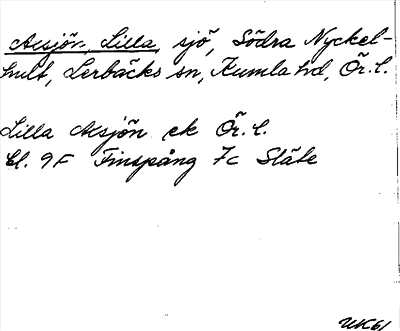 Acsjön, Lilla, sjö, Södra Nyckel-
hult, Lerbäcks sn, Kumla hd, Ör. l.
Lilla Acsjön ek Ör. l.
Bl. 9F Finspång 7c Släte
UK61